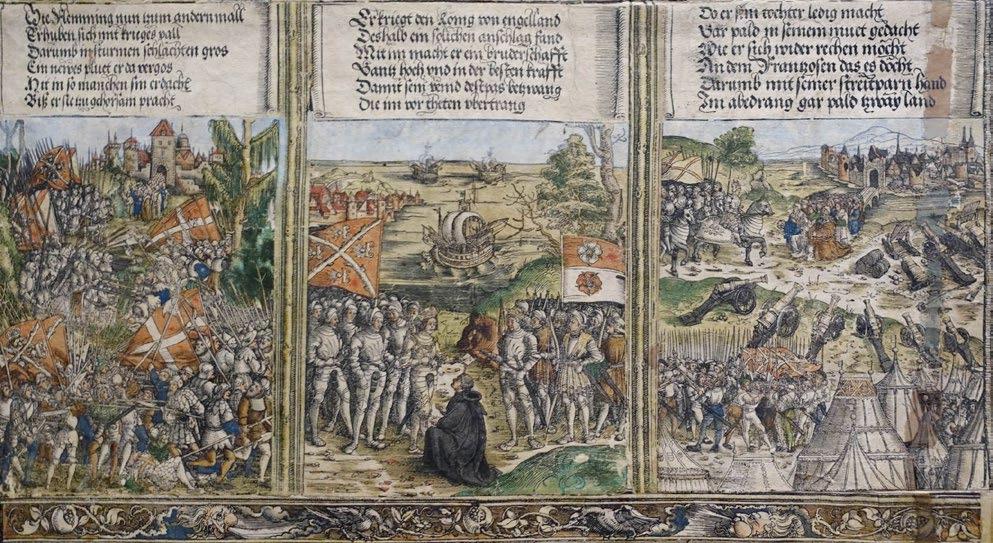 Die Flemming nun zum andern mall
Erhuben sich mit krieges vall
Darumb in sturmen schlachten gros
Ein newes pluet er da vergos
Mit in so manchen sin erdacht
Biß er sie in gehorsam pracht
Er kriegt den konig von engelland
Deshalb ein solichen anschlag fand
Mit im macht er ein bruderschafft
Ganz hoch vnd in der besten krafft
Damit sein veind destpas betzwang
Die im vor theten vbertrang
Do er sein tochter ledig macht
War pald in seinem muet gedacht
Wie er sich wider rechen möcht
An dem Frantzosen das es döcht
Darumb mit seiner streitparn hand
Im abedrang gar pald zway land